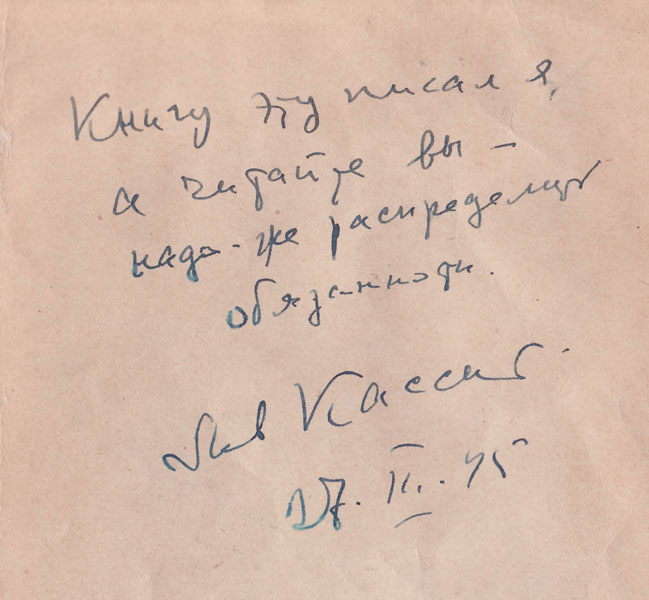 Книгу эту писал я,
а читайте вы –
надо-же распределить
обязанности.
Лев Кассиль.
27. II. 45